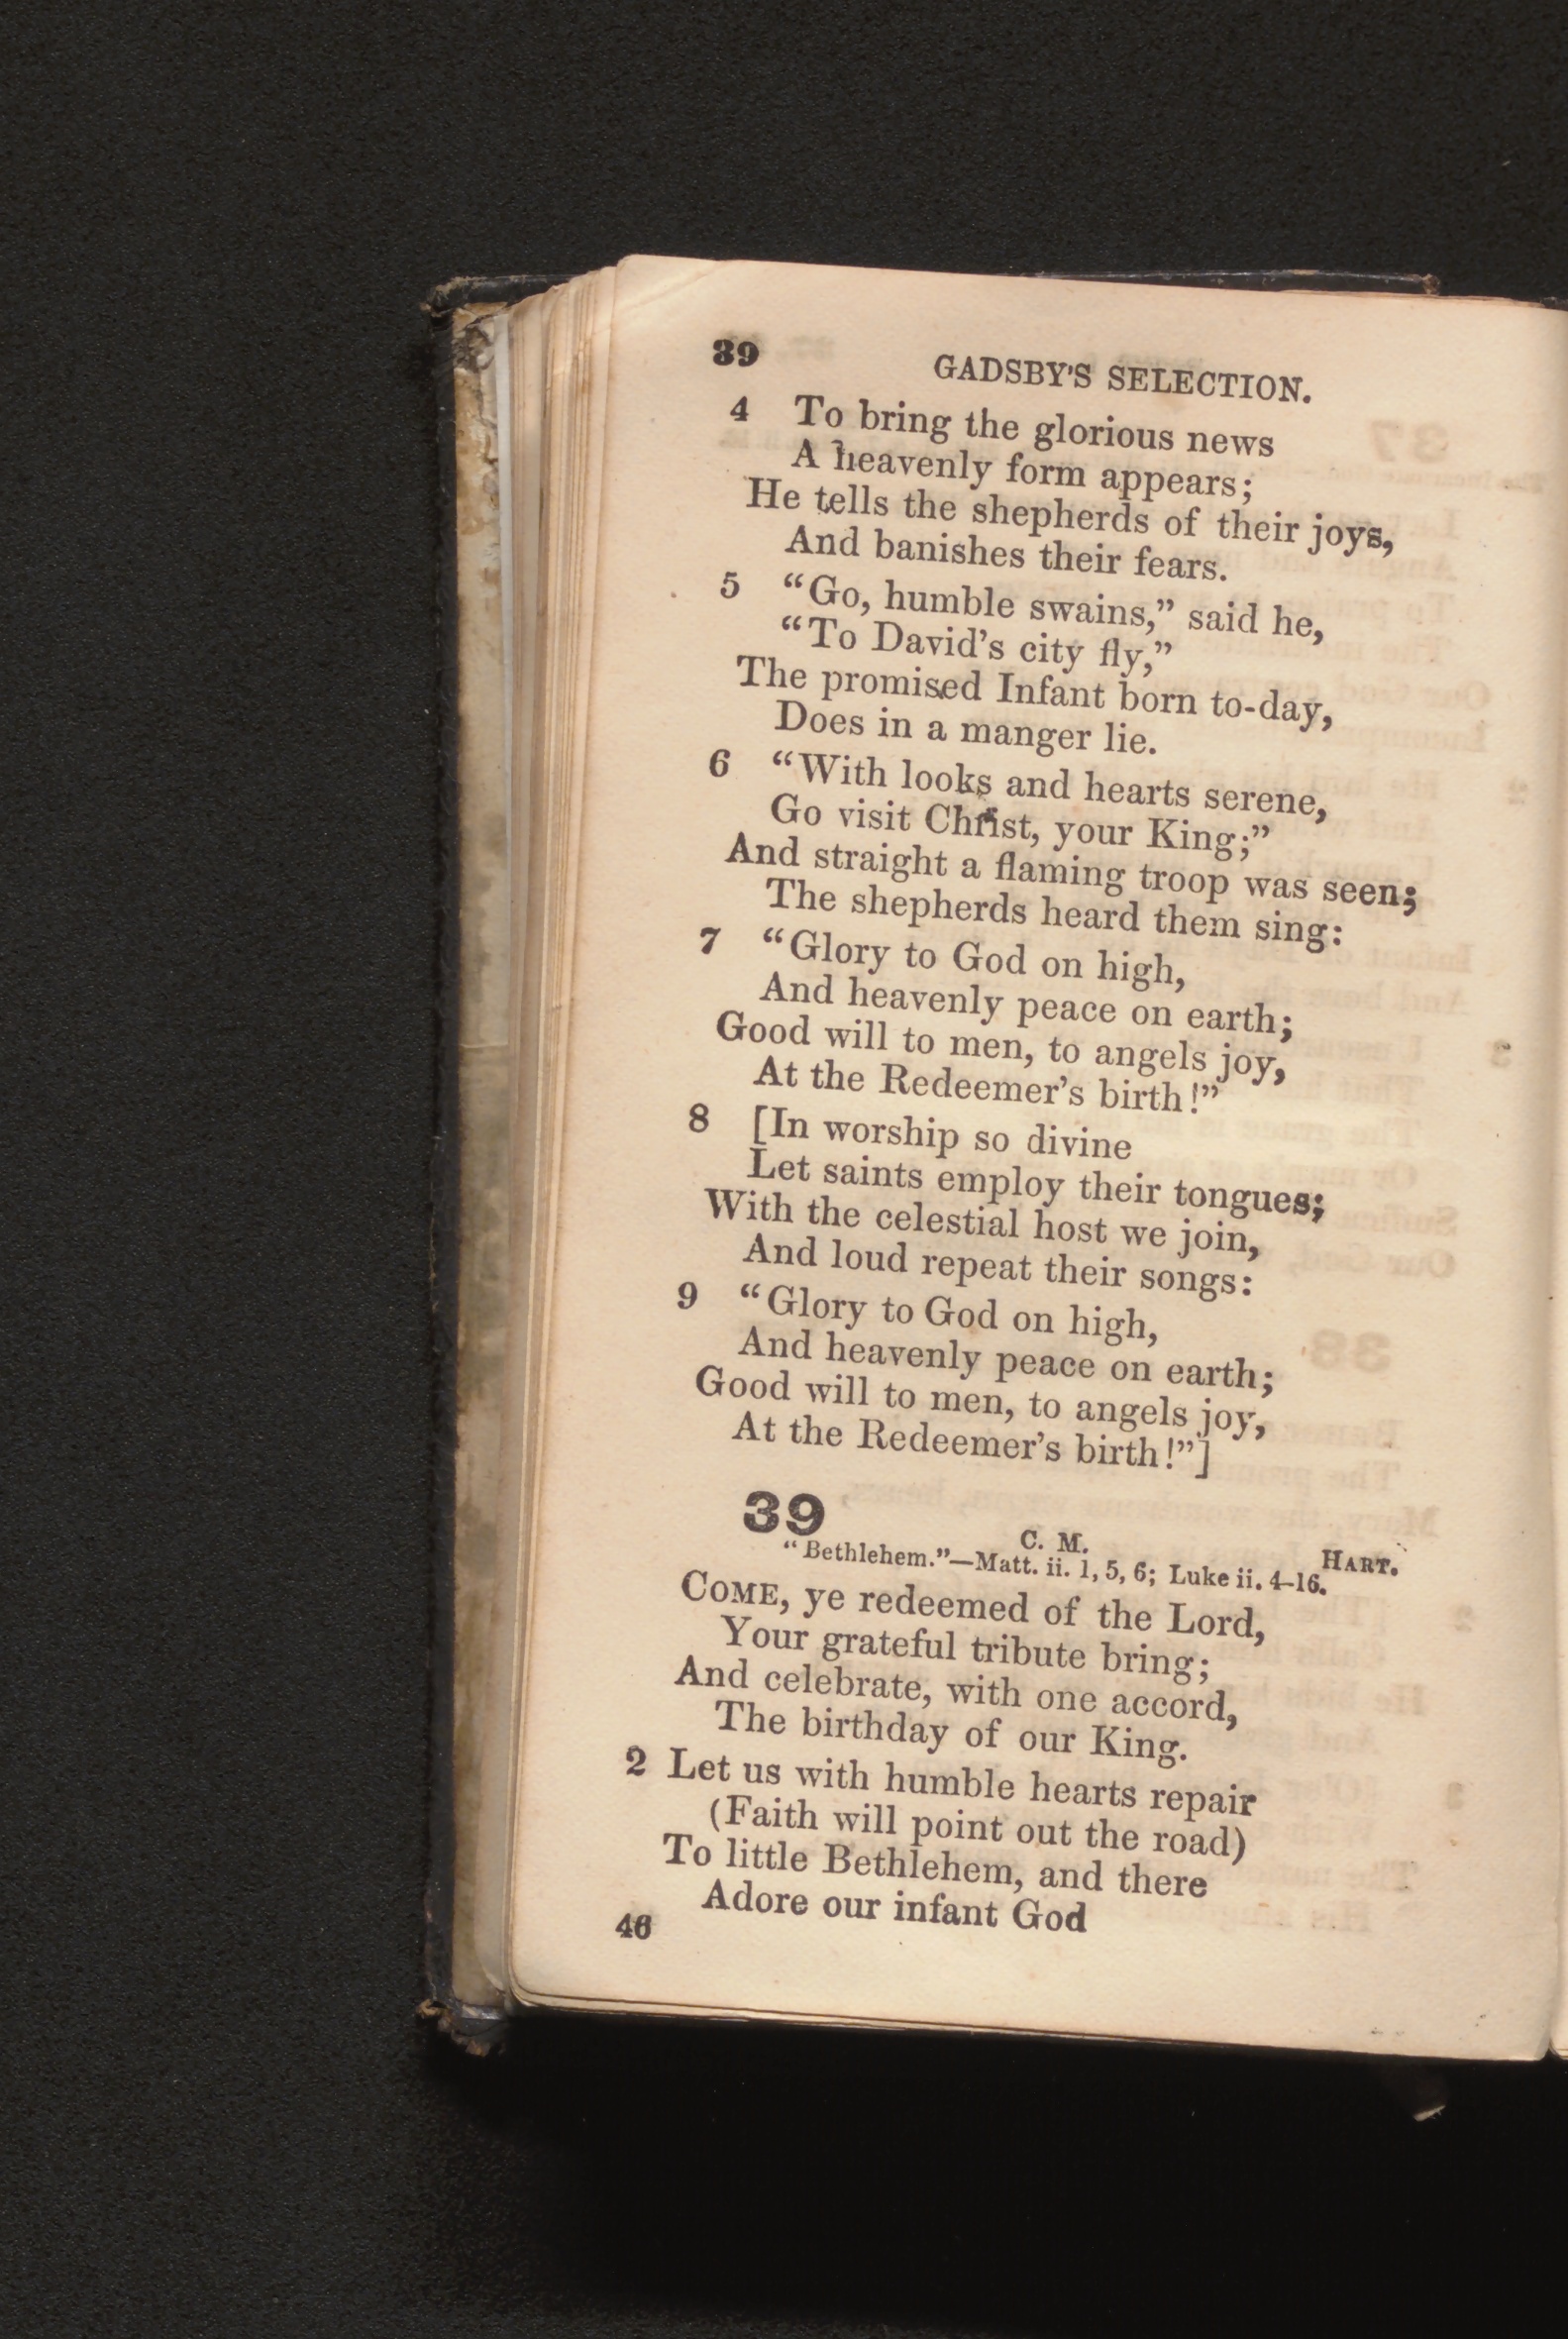 39 GADSBY'S SELECTION.
4 To bring the glorious news
A heavenly form appears;
He tells the shepherds of their joys,
And banishes their fears.
5 “Go, humble swains,” said he,
“To David’s city fly,”
The promised Infant born to-day,
Does in a manger lie.
6 “With looks and hearts serene,
Go visit Christ, your King;”
And straight a flaming troop was seen;
The shepherds heard them sing:
7 “Glory to God on high,
And heavenly peace on earth;
Good will to men, to angels joy,
At the Redeemer’s birth!”
8 [In worship so divine
Let saints employ their tongues;
With the celestial host we join,
And loud repeat their songs:
9 “Glory to God on high,
And heavenly peace on earth;
Good will to men, to angels joy,
At the Redeemer’s birth!”]
39 C. M. HART.
“Bethlehem.”—Matt. ii. 1, 5, 6; Luke ii. 4–16.
COME, ye redeemed of the Lord,
Your grateful tribute bring;
And celebrate, with one accord,
The birthday of our King.
2 Let us with humble hearts repair
(Faith will point out the road)
To little Bethlehem, and there
Adore our infant God
46